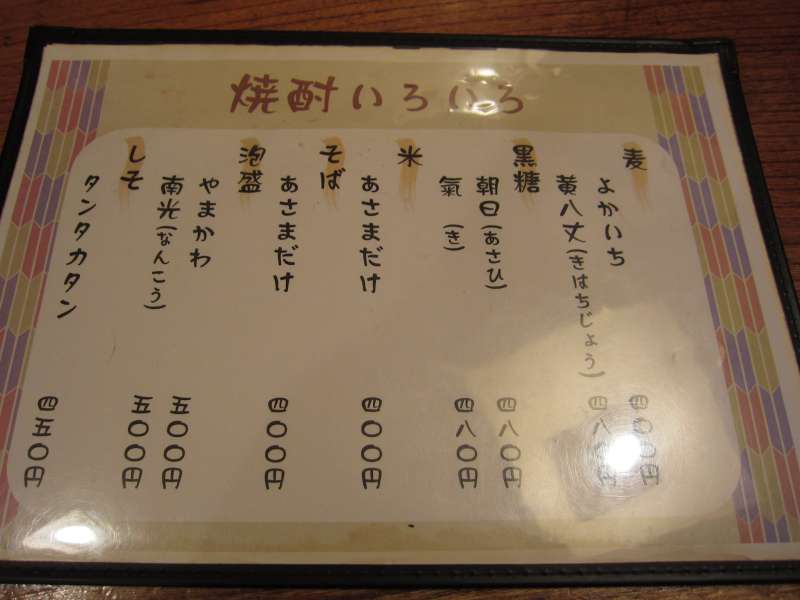 焼酎いろいろ
麦
よかいち 四〇〇円
黄八丈(きはちじょう) 四八〇円
黒糖
朝日(あさひ) 四八〇円
氣(き) 四八〇円
米
あさまだけ 四〇〇円
そば
あさまだけ 四〇〇円
泡盛
やまかわ 五〇〇円
南光(なんこう) 五〇〇円
しそ
タンタカタン 四五〇円